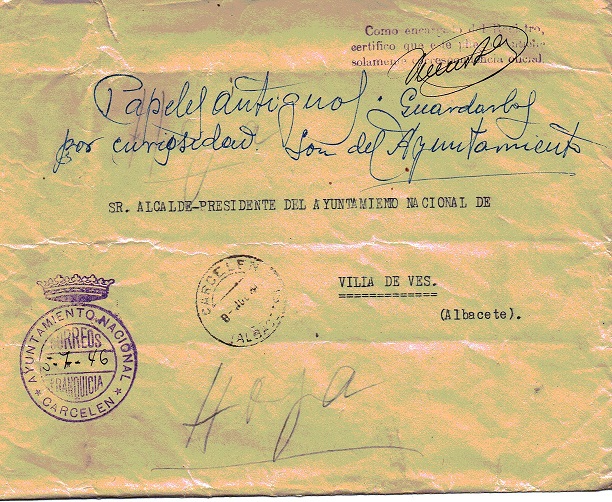 Como encargado del Registro,
certifico que este pliego
solamente correspondencia oficial.
Papeles antiguos. Guardarlos
por curiosidad. Son del Ayuntamiento
SR. ALCALDE-PRESIDENTE DEL AYUNTAMIEMO NACIONAL DE
VILLA DE VES.
(Albacete).
CARCELEN
(ALBACETE)
AYUNTAMIENTO NACIONAL
CORREOS
5-7-46
FRANQUICIA
CARCELEN
Hoja